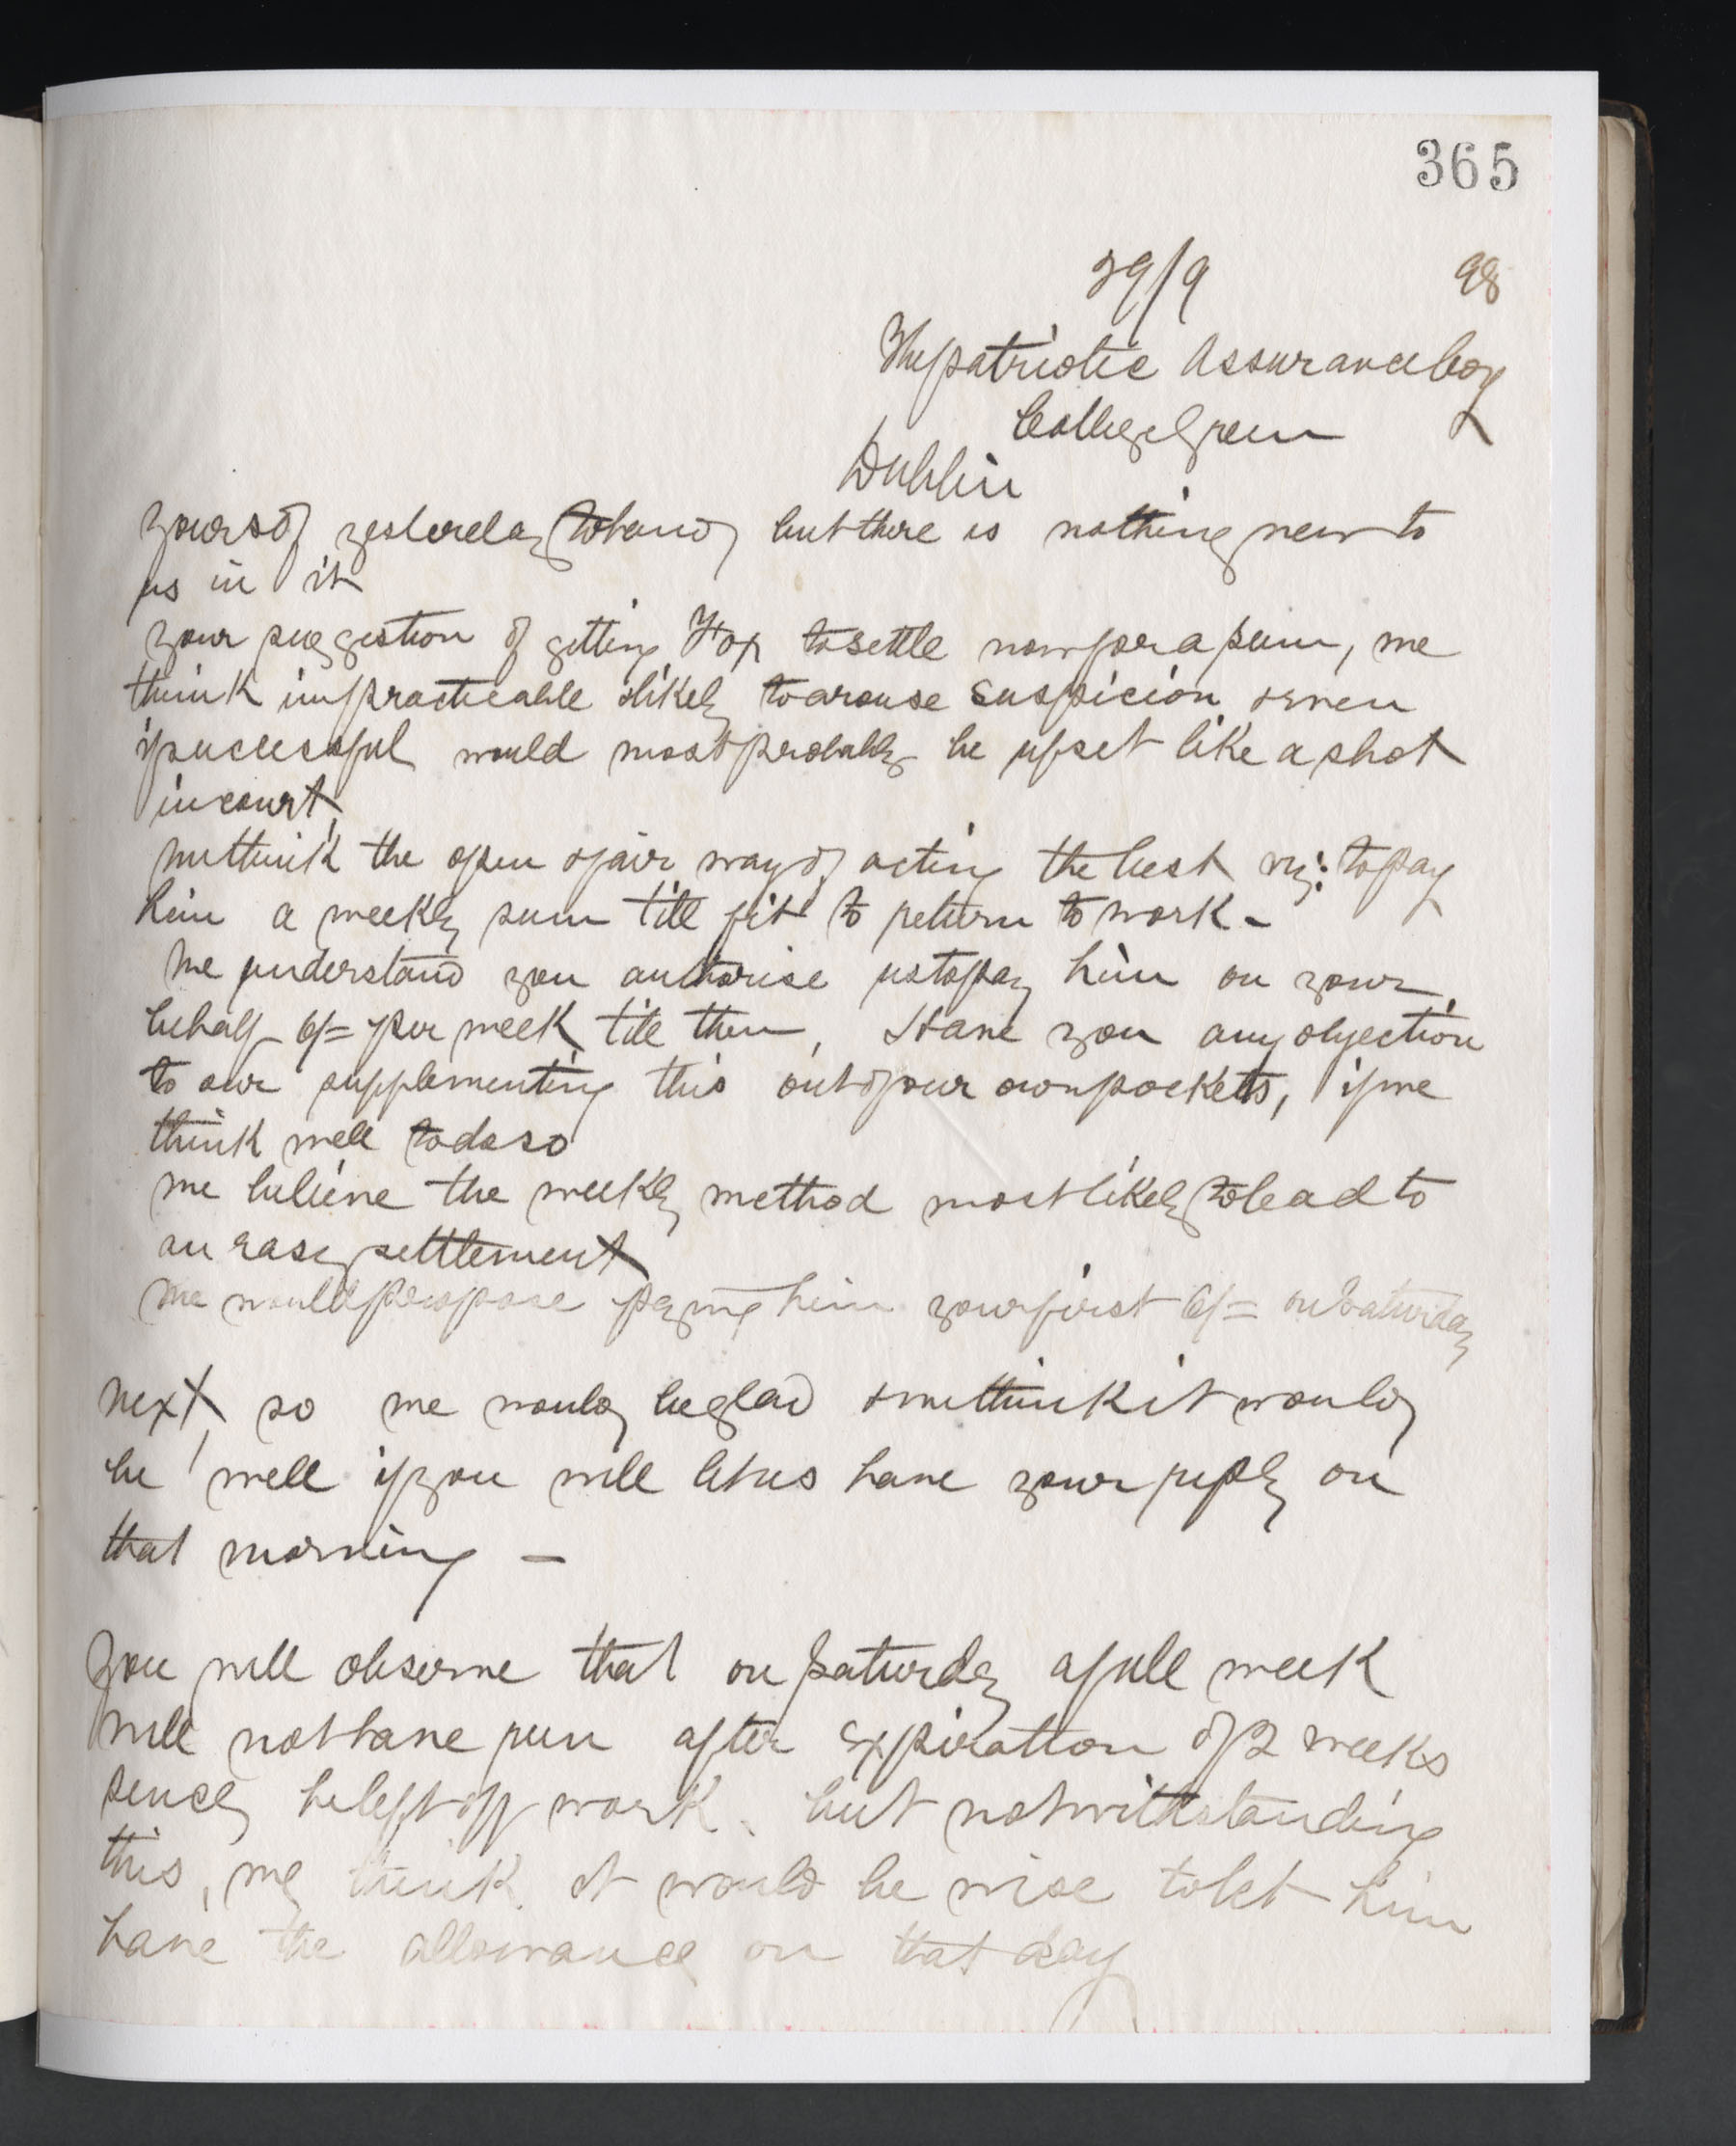 365
29/9 98
The patriotic Assurance Coy
College Green
Dublin
yours of yesterday to hand, but there is nothing new to
us in it
your suggestion of getting Fox to settle now for a sum, we
think impracticable & likely to arouse suspicion & even
if successful would most probably be upset like a shot
in court,
we think the open & fair way of acting the best viz: to pay
him a weekly sum till fit to return to work -
we understand you authorise us to pay him on your
behalf 6/= per week till then, Have you any objection
to our supplementing this out of our own pockets, if we
think well to do so
we believe the weekly method most likely to lead to
an easy settlement
we would propose paying him your first 6/= on Saturday
next, so we would be glad & we think it would
be well if you will let us have your reply on
that morning -
you will observe that on Saturday a full week
will not have run after expiration of 2 weeks
since he left off work. but notwithstanding
this, we think it would be wise to let him
have the allowance on that day